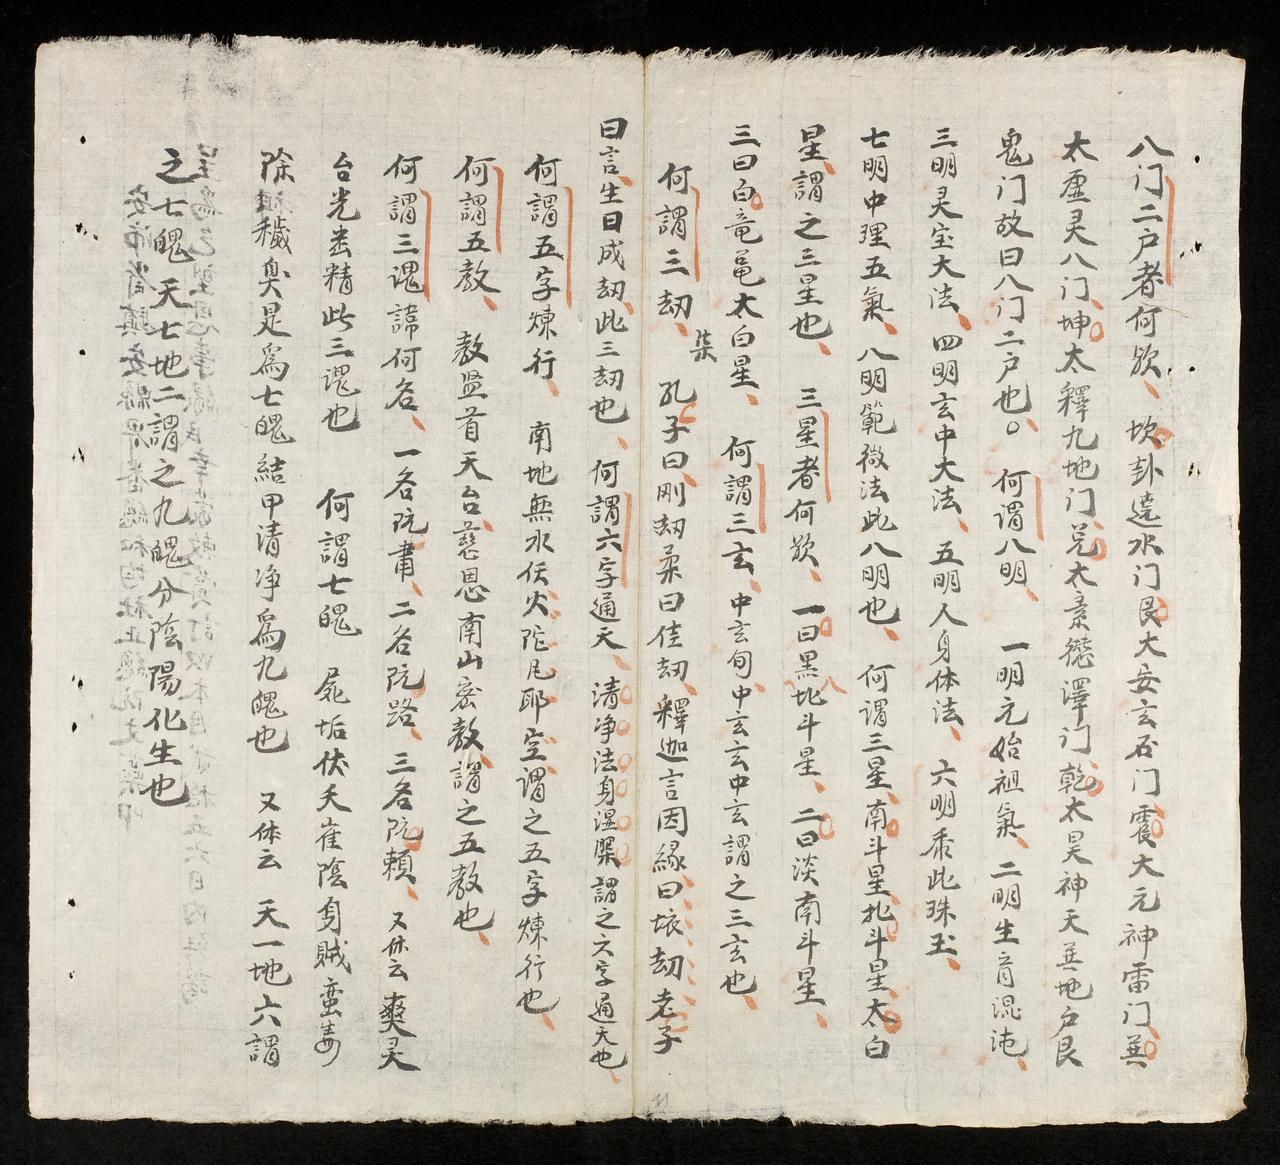 八门二户者何欤、坎卦遶水门艮大安玄石门震大元神雷门巽
太虛灵八门、坤太釋九地门兑太素德澤门乾太昊神天巽地户艮
鬼门故曰八门二户也。何谓八明、一明元始祖氣、二明生育混沌、
三明灵宝大法、四明玄中大法、五明人身体法、六明黍此珠玉、
七明中理五氣、八明範微法此八明也、何谓三星、南斗星北斗星太白
星、謂之三星也、三星者何欤、一曰黑北斗星、二曰淡南斗星、
三曰白竜黾太白星、何謂三玄、中玄旬中玄玄中玄謂之三玄也、
何謂三劫、柒孔子曰刚劫柔曰佳劫、釋迦言因緣曰垓劫老子
曰言、生日成劫、此三劫也、何謂六字通天、清净法身湿槩謂之六字通天也、
何謂五字煉行、南地無水伏火陀凡耶空謂之五字煉行也、
何謂五教、教盟首天台、慈恩南山密教謂之五教也、
何謂三魂諱何名、一名阮肅、二名阮路、三名阮賴、又体云爽灵
台光幽精此三魂也 何謂七魄 屍垢伏夭雀陰身賊蛮毒
除祖穢臭是為七魄結甲清净為九魄也 又体云 天一地六謂
之七魄天七地二謂之九魄分陰陽化生也